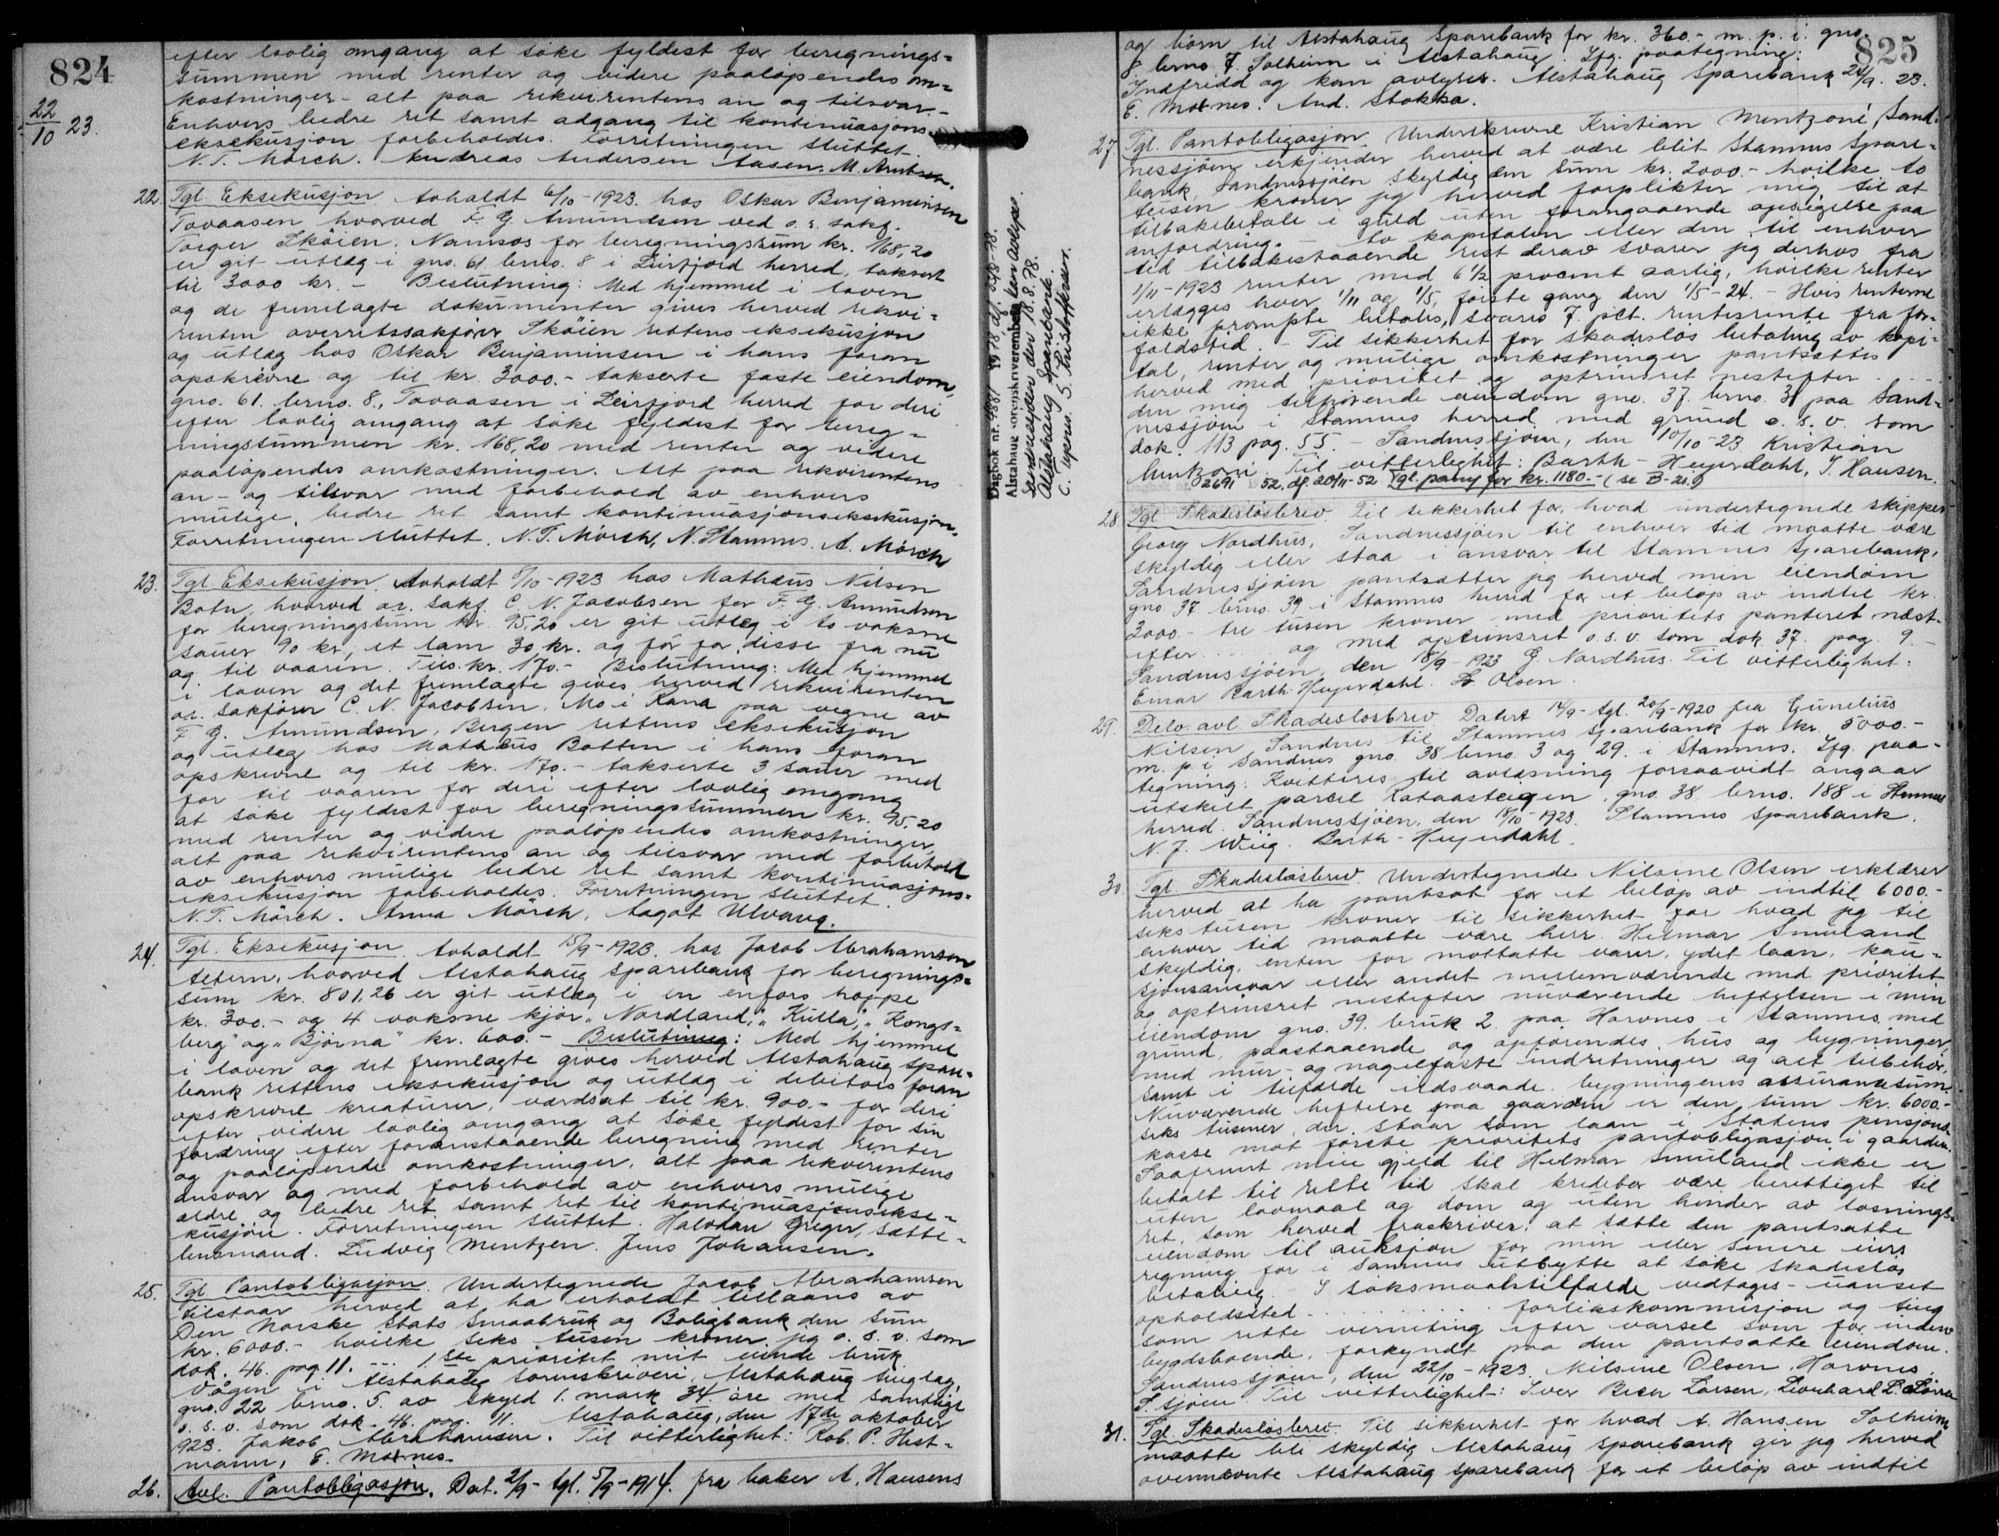 824
22/10 23.
efter lovlig omgang at söke fyldest for beregnings=
summen med renter og videre paalöpendes om=
kostninger - alt paa rekvirentens an og tilsvar.
Enhvers bedre ret samt adgang til kontinuasjons-
eksekusjon forbeholdes. Forretningen sluttet.
N. T. Mörch. Andreas Andersen Aasen. M. Arntsen.
22. Tgl. Eksekusjon Avholdt 6/10-1923 hos Oskar Benjaminsen
Tovaasen hvorved F. G. Amundsen ved o. r. sakf.
Torger Sköien, Namsos for beregningssum kr. 168,20
er git utlæg i gno. 61 brno. 8 i Leirfjord herred, taksert
til 3000 kr. - Beslutning: Med hjemmel i loven
og de fremlagte dokumenter gives herved rekvi-
renten overretssakförer Sköien rettens eksekusjon
og utlæg hos Oskar Benjaminsen i hans foran
opskrevne og til kr. 3000.- takserte faste eiendom,
gno. 61. brno. 8., Tovaasen i Leirfjord herred for deri
efter lovlig omgang at söke fyldest for bereg-
ningssummen kr. 168,20 med renter og videre
paalöpendes omkostninger. Alt paa rekvirentens
an- og tilsvar med forbehold av enhvers
mulige bedre ret samt kontinuasjonseksekusjon.
Forretningen sluttet. N. T. Mörch, N. Stamnes. A. Mörch
23. Tgl. Eksekusjon. Avholdt 8/10-1923 hos Mathæus Nilsen
Botn, hvorved o.r. sakf. C. N. Jacobsen for F. G. Amundsen
for beregningssum kr. 95.20 er git utlæg i to voksne
sauer 90 kr, et lam 30 kr. og fór for disse fra nu
og til vaaren. Tils. kr. 170.- Beslutning: Med hjemmel
i loven og det fremlagte gives herved rekvirenten
o.r. sakförer C. N. Jacobsen, Mo i Rana paa vegne av
F. G. Amundsen, Bergen rettens eksekusjon
og utlæg hos Mathæus Botten i hans foran
opskrevne og til kr. 170.- takserte 3 sauer med
for til vaaren for deri efter lovlig omgang
at söke fyldest for beregningssummen kr. 95,20
med renter og videre paalöpendes omkostninger,
alt paa rekvirentens an og tilsvar med forbehold
av enhvers mulige bedre ret samt kontinuasjons-
eksekusjon forbeholdes. Forretningen sluttet.
N. T. Mörch. Anna Mörch, Aagot Ulvang.
24. Tgl. Eksekusjon Avholdt 15/9-1923 hos Jacob Abrahamsen
Altern, hvorved Alstahaug Sparebank for beregnings=
sum kr. 801,26 er git utlæg i en enfors hoppe
kr. 300.- og 4 voksne kjör „Nordland", „Kulla", „Kongs=
berg" og „Björna" kr. 600.- Beslutning: Med hjemmel
i loven og det fremlagte gives herved Alstahaug Spare=
bank rettens eksekusjon og utlæg i debitors foran
opskrevne kreaturer, værdsat til kr. 900.- for deri
efter videre lovlig omgang at söke fyldest for sin
fordring efter foranstaaende beregning med renter
og paalöpende omkostninger, alt paa rekvirentens
ansvar og med forbehold av enhvers mulige
ældre og bedre ret samt ret til kontinuasjonsekse-
kusjon. Forretningen sluttet. Halvdan Greger, sætte-
lensmand. Ludvig Mentzen. Jens Johansen.
25. Tgl. Pantobligasjon. Undertegnede Jacob Abrahamsen
tilstaar herved at ha erholdt tillaans av
Den Norske Stats Smaabruk og Boligbank den sum
kr. 6000.- hvilke seks tusen kroner jeg o. s. v. som
dok. 46. pag. 11. ... 1ste prioritet mit eiende bruk
Vågen i Alstahaug sorenskriveri, Alstahaug tinglag,
gno. 22 brno. 5. av skyld 1. mark 34 öre med samtlige
o. s. v. som dok. 46. pag. 11. Alstahaug, den 17de oktober
1923. Jakob Abrahamsen. Til vitterlighet: Rob. P. Hest-
mann, E. Mosnes.
26. Avl. Pantobligasjon. Dat. 2/9- tgl. 5/9-1914. fra baker A. Hansens
Dagbok nr. 4881 1978 dgf. 23/8-78.
Alstahaug sorenskriverembete kan avlyses.
Sandnessjøen den 18.8.78.
Alstahaug Sparebank
S. Kristoffersen.
825
og börn til Alstahaug Sparebank for kr. 360.- m. p. i. gno.
8 brno. 7. Solheim i Alstahaug. Lfg. paategning:
Indfridd og kan avlyses. Alstahaug Sparebank 24/9. 23.
E. Mosnes. And. Stokka.
27. Tgl. Pantobligasjon. Underskrevne Kristian Mentzoni, Sand-
nessjöen erkjender herved at være blit Stamnes Spare-
bank, Sandnessjöen skyldig den sum kr. 2000.- hvilke to
tusen kroner jeg herved forplikter mig til at
tilbakebetale i guld uten forangaaende opsigelse paa
anfordring. - Av kapitalen eller den til enhver
tid tilbakestaaende rest derav svarer jeg derhos fra
1/11-1923 renter med 6 1/2 procent aarlig, hvilke renter
erlægges hver 1/11 og 1/5, förste gang den 1/5-24. - Hvis renterne
ikke prompte betales, svares 7 pct. rentesrente fra for-
faldstid. - Til sikkerhet for skadeslös betaling av kapi-
tal, renter og mulige omkostninger pantsættes
herved med prioritet og optrinsret nestefter ....
den mig tilhörende eiendom gno. 37. brno. 31 paa Sand-
nessjöen i Stamnes herred med grund o. s. v. som
dok. 113 pag. 55. - Sandnessjöen, den 10/10-23 Kristian
Mentzoni. Til vitterlighet: Barth-Heyerdahl, T. Hansen.
2691 52. df. 20/11-52 Tgl. pany for kr. 1180.- (se B-21.)
28. Tgl. Skadeslösbrev Til sikkerhet for, hvad undertegnede skipper
Georg Nordhus, Sandnessjöen til enhver tid maatte være
skyldig eller staa i ansvar til Stamnes Sparebank,
Sandnessjöen pantsætter jeg herved min eiendom
gno 37 brno. 39 i Stamnes herred for et belöp av indtil kr.
3000.- tre tusen kroner med prioritets panteret næst-
efter ... og med optrinsret o.s.v. som dok. 37. pag. 9. -
Sandnessjöen, den 18/9-1923 G. Nordhus. Til vitterlighet:
Einar Barth-Heyerdahl. Olsen.
29. Delv. avl. Skadeslosbrev Datert 14/9- tgl. 20/9-1920 fra Gunelius
Nilsen, Sandnes til Stamnes Sparebank for kr. 5000.-
m. p. i Sandnes gno. 38 brno. 3 og 29. i Stamnes. Lfg. paa-
tegning: Kvitteres til avlæsning forsaavidt angaar
utskilt parcel Rataasteigen, gno. 38 brno. 188 i Stamnes
herred. Sandnessjöen, den 18/10-1923. Stamnes Sparebank.
N. J. Wiig. Barth-Heyerdahl.
30. Tgl. Skadeslösbrev. Undertegnede Nilsine Olsen erklærer
herved at ha pantsat for et belöp av indtil 6000.-
seks tusen kroner til sikkerhet for hvad jeg til
enhver tid maatte være herr Helmar Smuland
skyldig, enten for mottatte varer, ydet laan, kau-
sjonsansvar eller andet mellemværende med prioritet
og optrinsret nestefter nuværende heftelsen i min
eiendom gno. 39. bruk 2. paa Horvnes i Stamnes, med
grund, paastaaende og opförendes hus og bygninger,
med mur- og nagelfaste indretninger og alt tilbehör,
samt i tilfælde ildsvaade bygningens assuransesum.
Nuværende heftelse paa gaarden er den sum kr. 6000.-
seks tusener, der staar som laan i Statens pensjons-
kasse mot förste prioritets pantobligasjon i gaarden.
Saafremt min gjeld til Helmar Smuland ikke er
betalt til rette tid skal kreditor være berettiget til
uten lovmaal og dom og uten hinder av løsnings-
ret, som herved fraskrives, at sætte den pantsatte
eiendom til auksjon for min eller senere eiers
regning for i sammes utbytte at söke skadeslös
betaling - I söksmaalstilfælde vedtages - uanset
opholdssted - ........ forlikskommisjon og ting
som rette verneting efter varsel som for inden
bygdsboende, forkyndt paa den pantsatte eiendom.
Sandnessjöen, den 22/10-1923. Nilsine Olsen, Horvnes
S. sjöen. Til vitterlighet: Iver Bech Larsen, Leonhard L. Larsen
31. Tgl. Skadeslösbrev. Til sikkerhet for hvad A. Hansen Solheim
maatte bli skyldig Alstahaug Sparebank gir jeg herved
ovennævnte Alstahaug Sparebank for et belöp av indtil